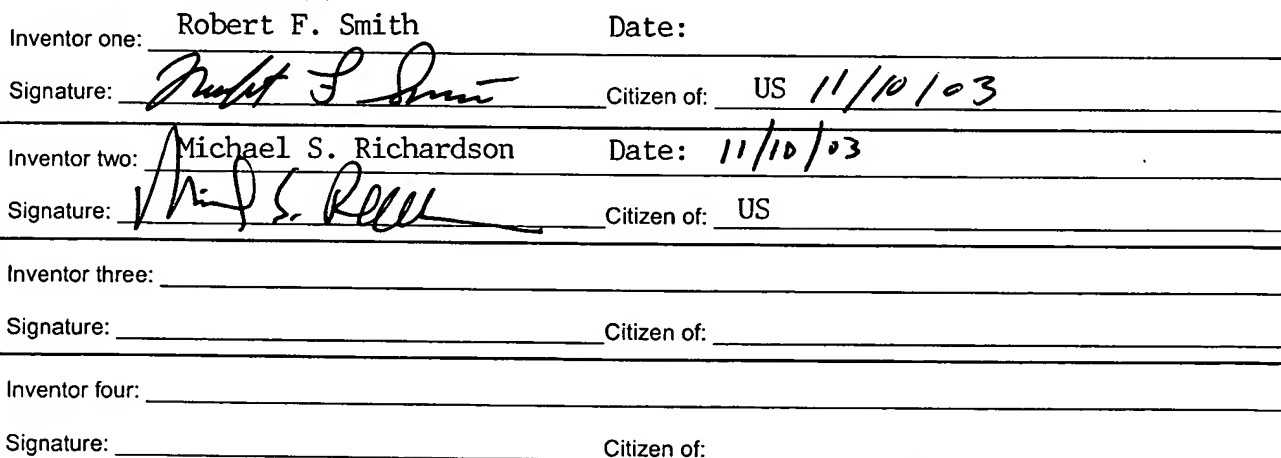 Inventor one: Robert F. Smith Date:
Signature: Robert F Smith Citizen of: US 11/10/03
Inventor two: Michael S. Richardson Date: 11/10/03
Signature: S. Citizen of: US
Inventor three:
Signature: Citizen of:
Inventor four:
Signature: Citizen of: